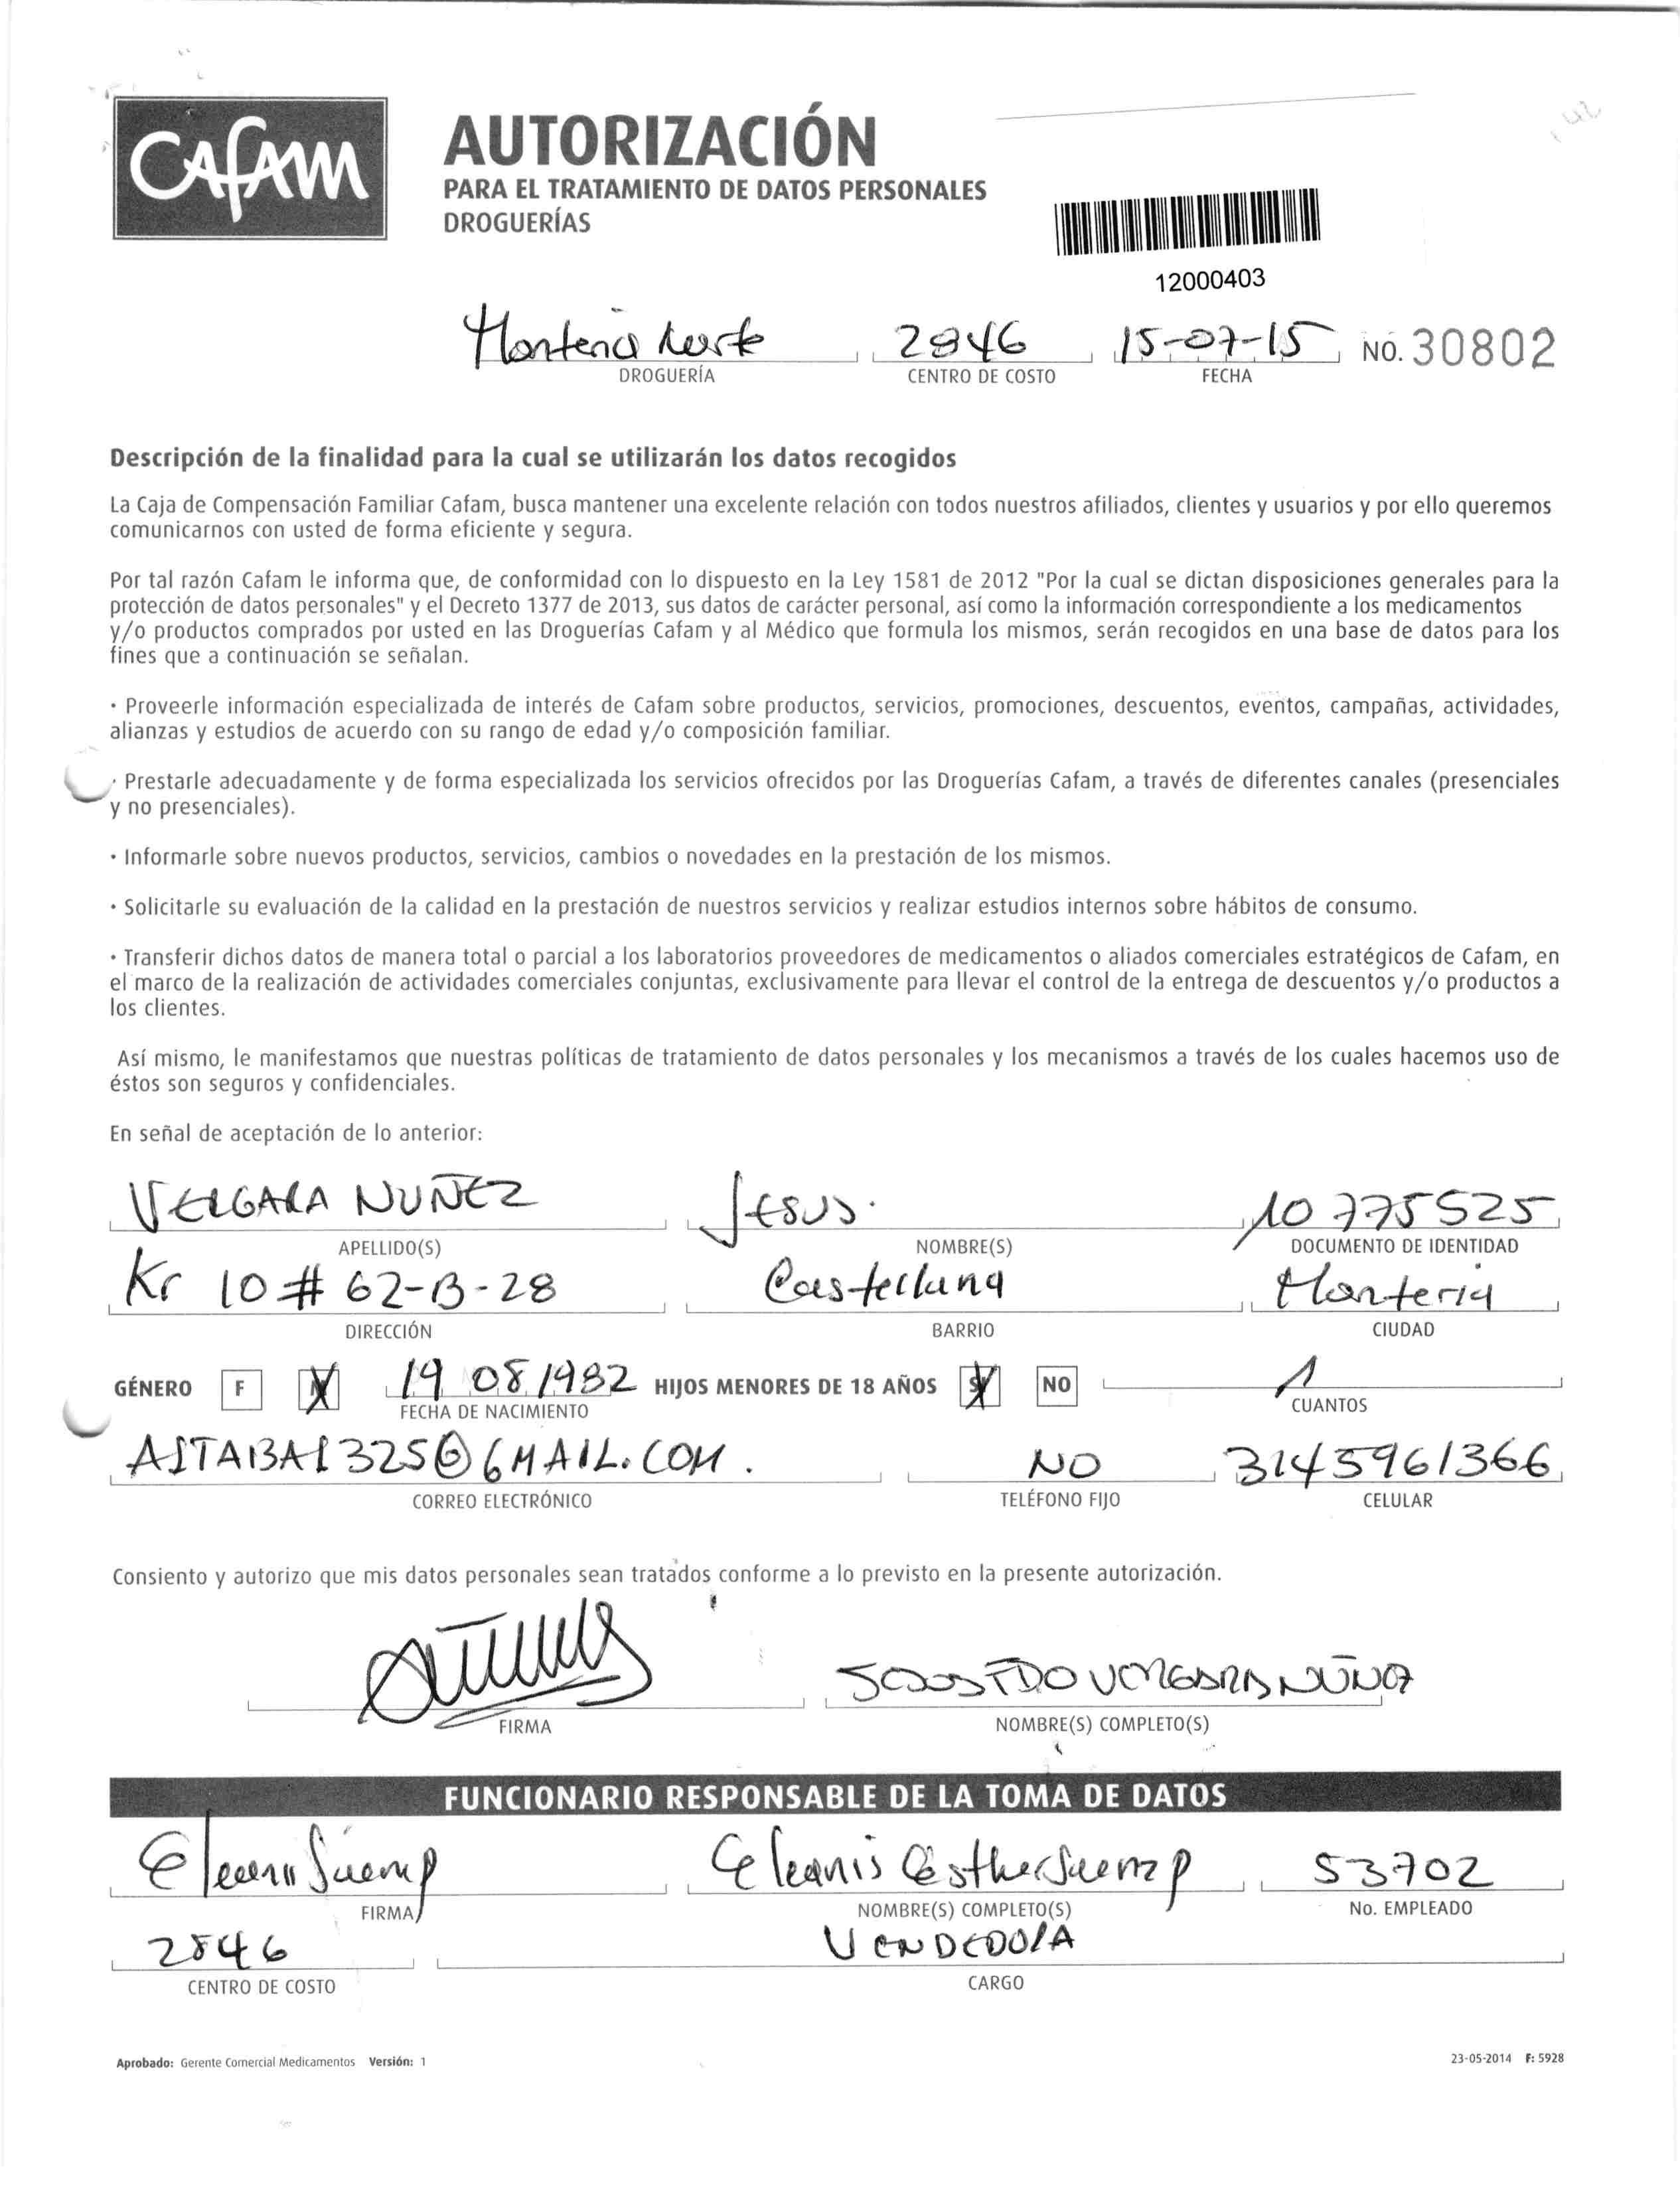 Cafam
AUTORIZACIÓN
PARA EL TRATAMIENTO DE DATOS PERSONALES
DROGUERÍAS
12000403
Monteria Norte 2846 15-07-15 NO. 30802
DROGUERÍA CENTRO DE COSTO FECHA
Descripción de la finalidad para la cual se utilizarán los datos recogidos
La Caja de Compensación Familiar Cafam, busca mantener una excelente relación con todos nuestros afiliados, clientes y usuarios y por ello queremos
comunicarnos con usted de forma eficiente y segura.
Por tal razón Cafam le informa que, de conformidad con lo dispuesto en la Ley 1581 de 2012 "Por la cual se dictan disposiciones generales para la
protección de datos personales" y el Decreto 1377 de 2013, sus datos de carácter personal, así como la información correspondiente a los medicamentos
y/o productos comprados por usted en las Droguerías Cafam y al Médico que formula los mismos, serán recogidos en una base de datos para los
fines que a continuación se señalan.
· Proveerle información especializada de interés de Cafam sobre productos, servicios, promociones, descuentos, eventos, campañas, actividades,
alianzas y estudios de acuerdo con su rango de edad y/o composición familiar.
· Prestarle adecuadamente y de forma especializada los servicios ofrecidos por las Droguerías Cafam, a través de diferentes canales (presenciales
y no presenciales).
· Informarle sobre nuevos productos, servicios, cambios o novedades en la prestación de los mismos.
· Solicitarle su evaluación de la calidad en la prestación de nuestros servicios y realizar estudios internos sobre hábitos de consumo.
· Transferir dichos datos de manera total o parcial a los laboratorios proveedores de medicamentos o aliados comerciales estratégicos de Cafam, en
el marco de la realización de actividades comerciales conjuntas, exclusivamente para llevar el control de la entrega de descuentos y/o productos a
los clientes.
Así mismo, le manifestamos que nuestras políticas de tratamiento de datos personales y los mecanismos a través de los cuales hacemos uso de
éstos son seguros y confidenciales.
En señal de aceptación de lo anterior:
VERGARA NUÑEZ JESUS. 10775525
APELLIDO(S) NOMBRE(S) DOCUMENTO DE IDENTIDAD
Kr 10 # 62-B-28 Castellana Monteria
DIRECCIÓN BARRIO CIUDAD
GÉNERO F X 19 08 1982 HIJOS MENORES DE 18 AÑOS SI X NO 1
FECHA DE NACIMIENTO CUANTOS
@GMAIL.COM. NO 3145961366
CORREO ELECTRÓNICO TELÉFONO FIJO CELULAR
Consiento y autorizo que mis datos personales sean tratados conforme a lo previsto en la presente autorización.
VERGARA
FIRMA NOMBRE(S) COMPLETO(S)
FUNCIONARIO RESPONSABLE DE LA TOMA DE DATOS
Eleanis Esther Saenz P 53702
FIRMA NOMBRE(S) COMPLETO(S) No. EMPLEADO
2846 VENDEDORA
CENTRO DE COSTO CARGO
Aprobado: Gerente Comercial Medicamentos Versión: 1 23-05-2014 F: 5928